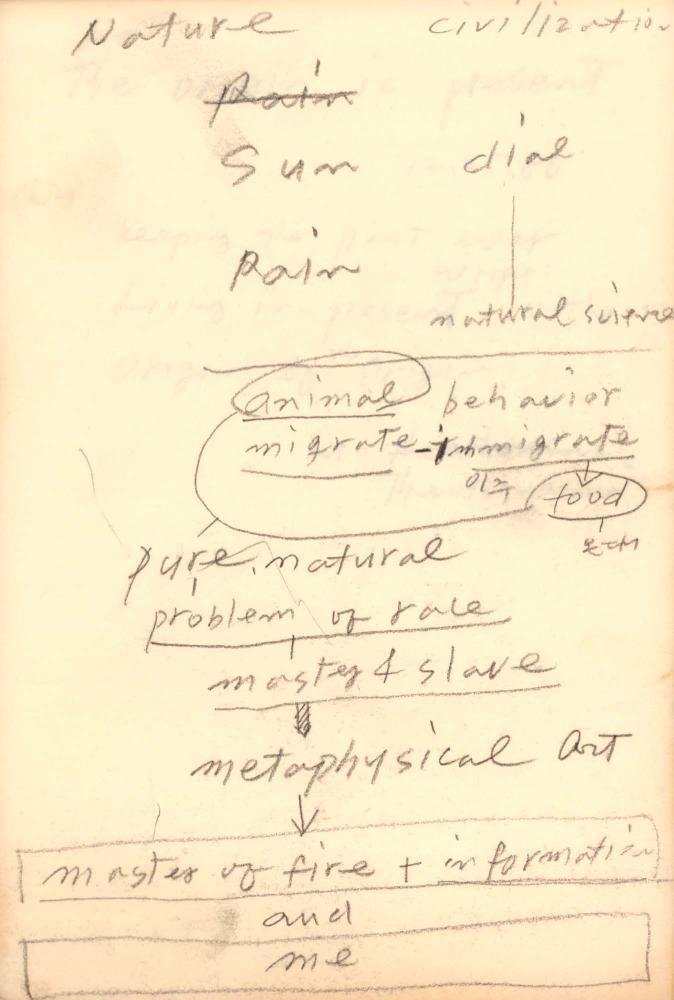 Nature civilization
Rain
Sun dial
Rain
natural science
animal behavior
migrate - immigrate
이주 food
pure, natural
problem of race
master & slave
metaphysical Art
master of fire + information
and
me